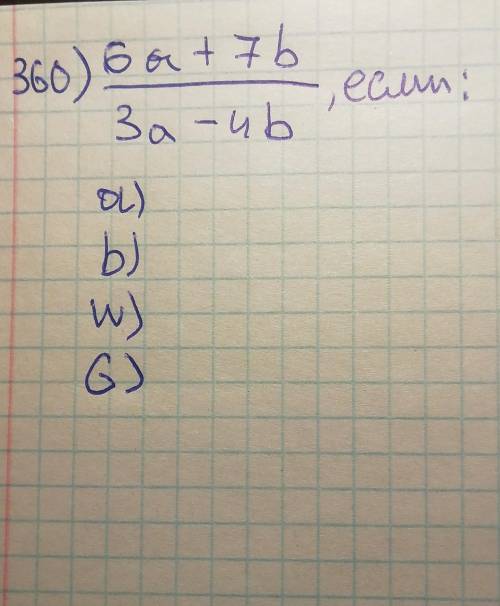 360) 6a + 7b / 3a - 4b , если:
a)
b)
w)
G)